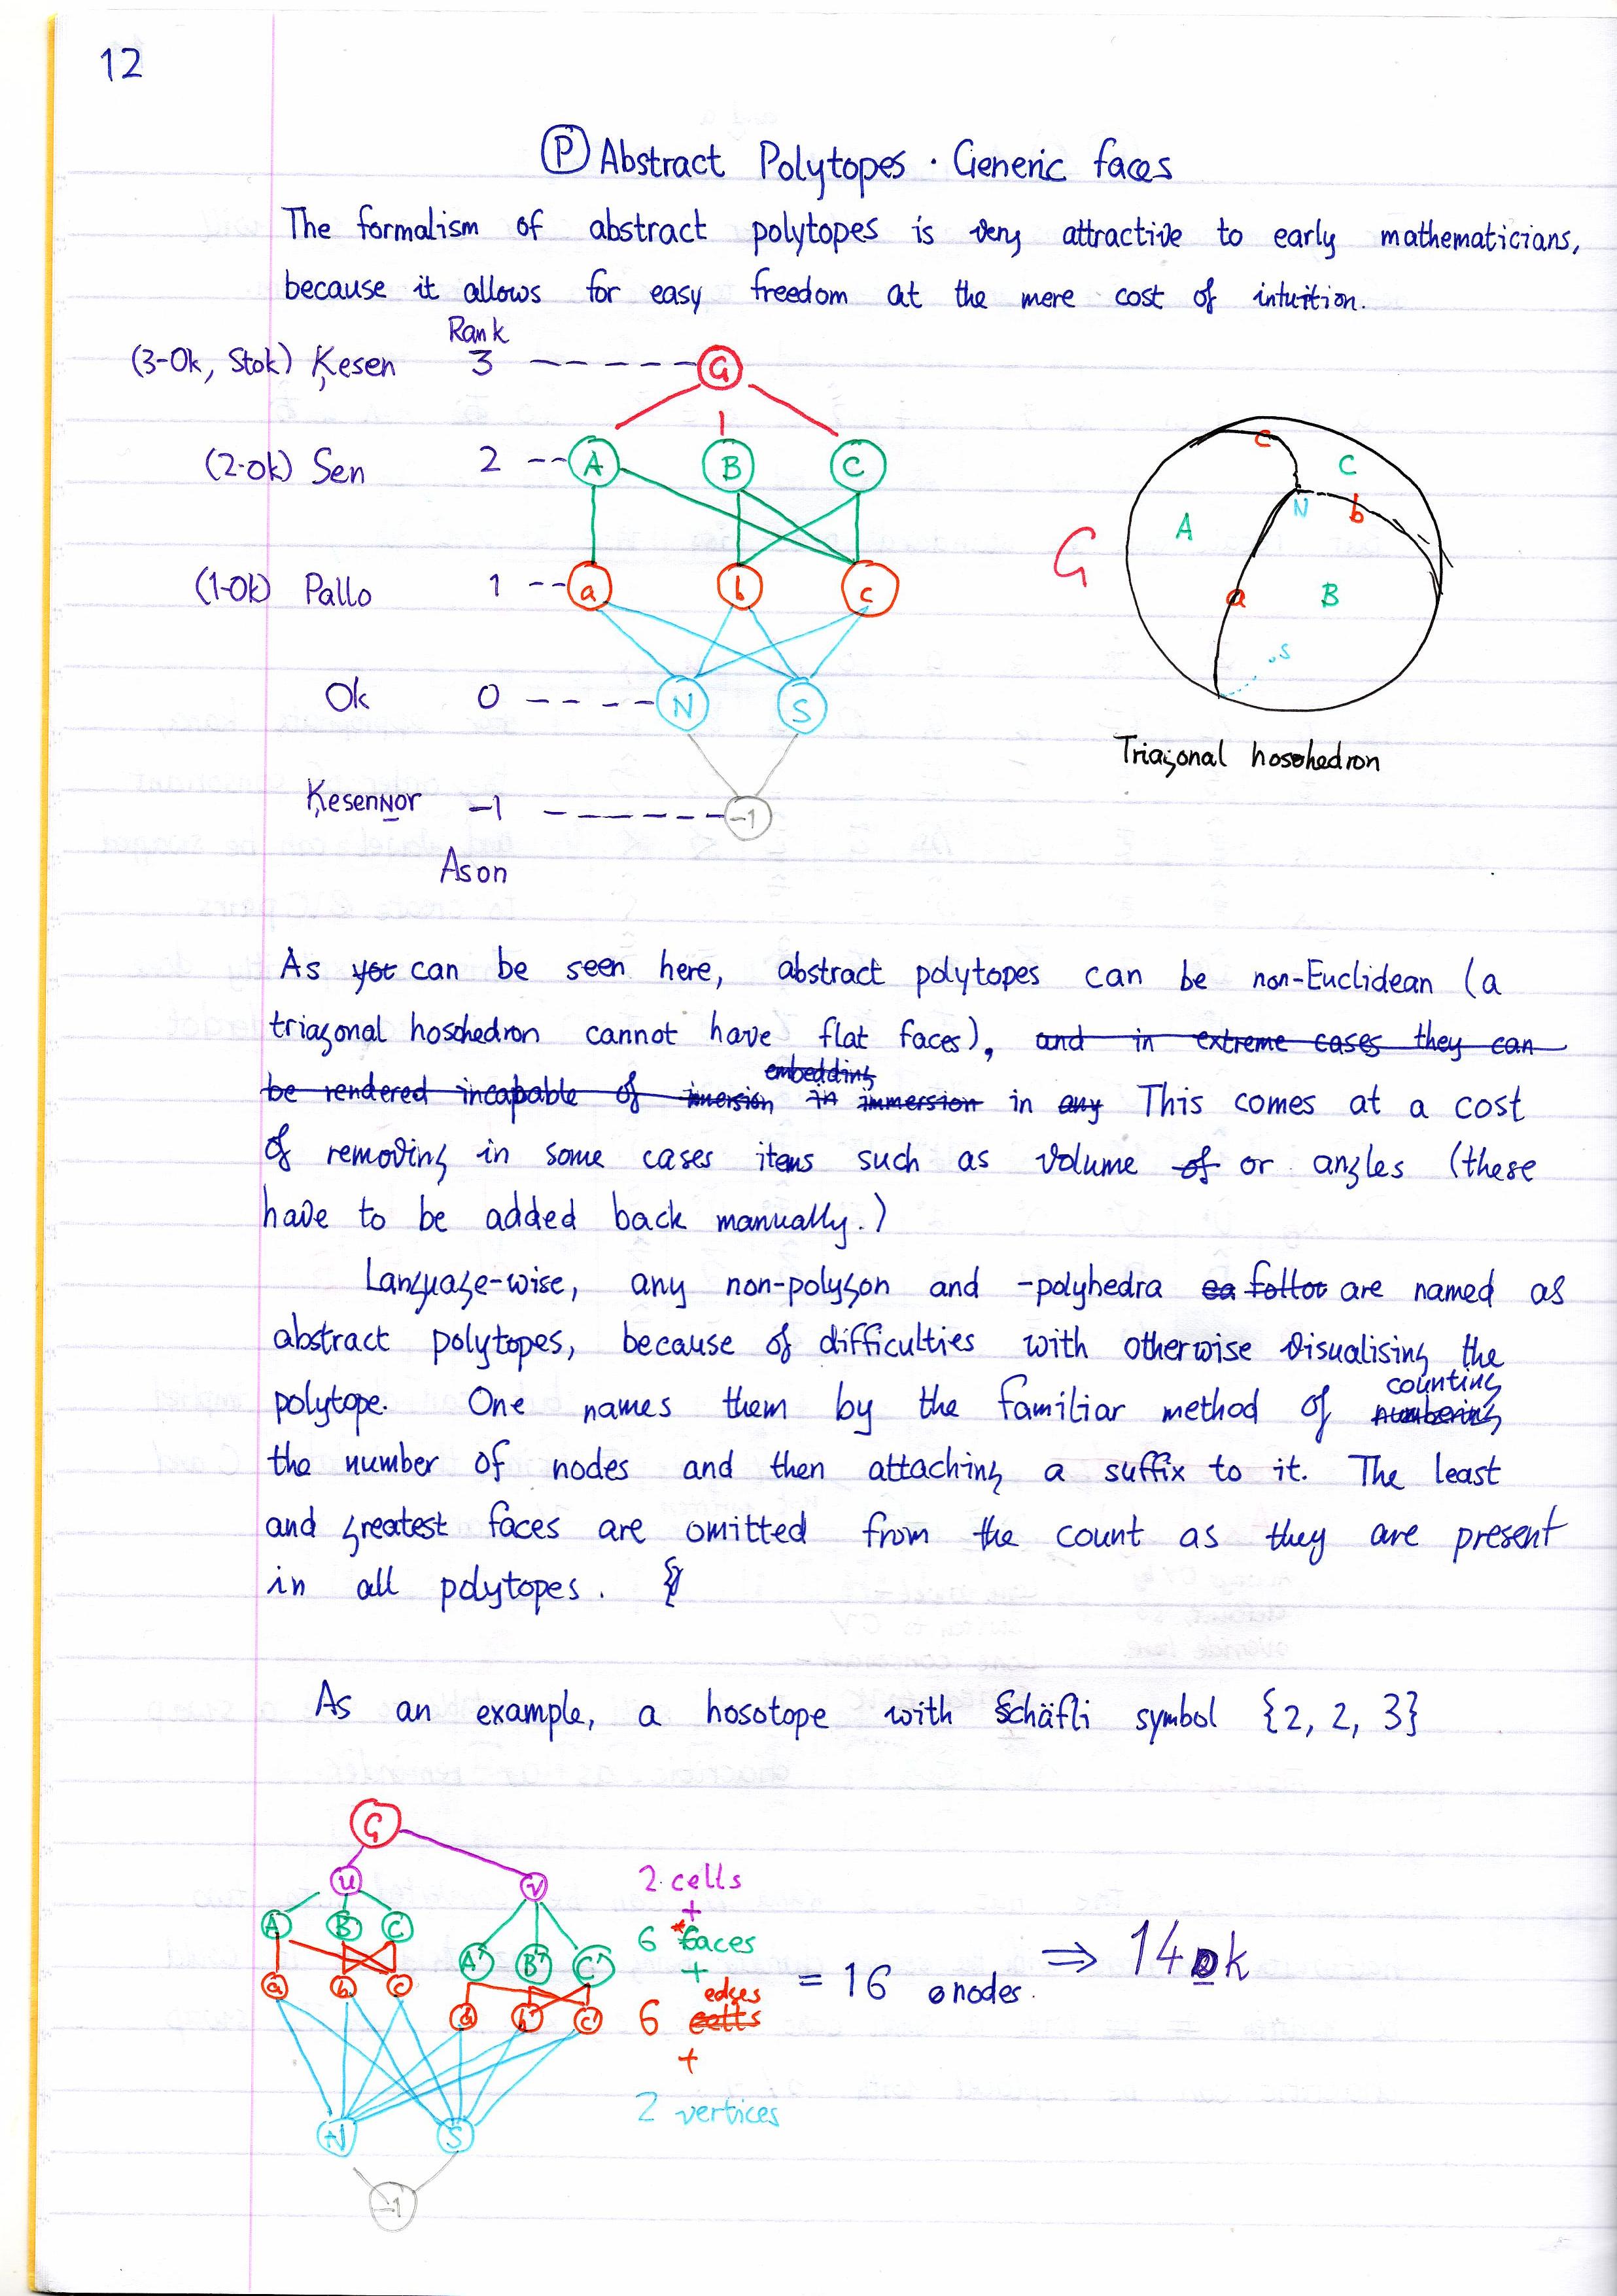 12
Ⓟ Abstract Polytopes · Generic faces
The formalism of abstract polytopes is very attractive to early mathematicians,
because it allows for easy freedom at the mere cost of intuition.
Rank
(3-Ok, Stok) Ķesen 3 G
(2-ok) Sen 2 A B C
(1-Ok) Pallo 1 a b c
Ok 0 N S
Ķesennor -1 -1
Ason
G
c
C
N
b
A
a
B
S
Triagonal hosohedron
As you can be seen here, abstract polytopes can be non-Euclidean (a
triagonal hosohedron cannot have flat faces), and in extreme cases they can
embedding
be rendered incapable of imersion in immersion in any This comes at a cost
of removing in some cases items such as volume of or angles (these
have to be added back manually.)
Language-wise, any non-polygon and -polyhedra ea follow are named as
abstract polytopes, because of difficulties with otherwise visualising the
counting
polytope. One names them by the familiar method of numbering
the number of nodes and then attaching a suffix to it. The least
and greatest faces are omitted from the count as they are present
in all polytopes.
As an example, a hosotope with Schäfli symbol {2, 2, 3}
G
u v
A B C
A' B' C'
a b c
a' b' c'
N S
-1
2 cells
+
6 faces
+
edges
6 cells
+
2 vertices
= 16 nodes. ⇒ 14ok